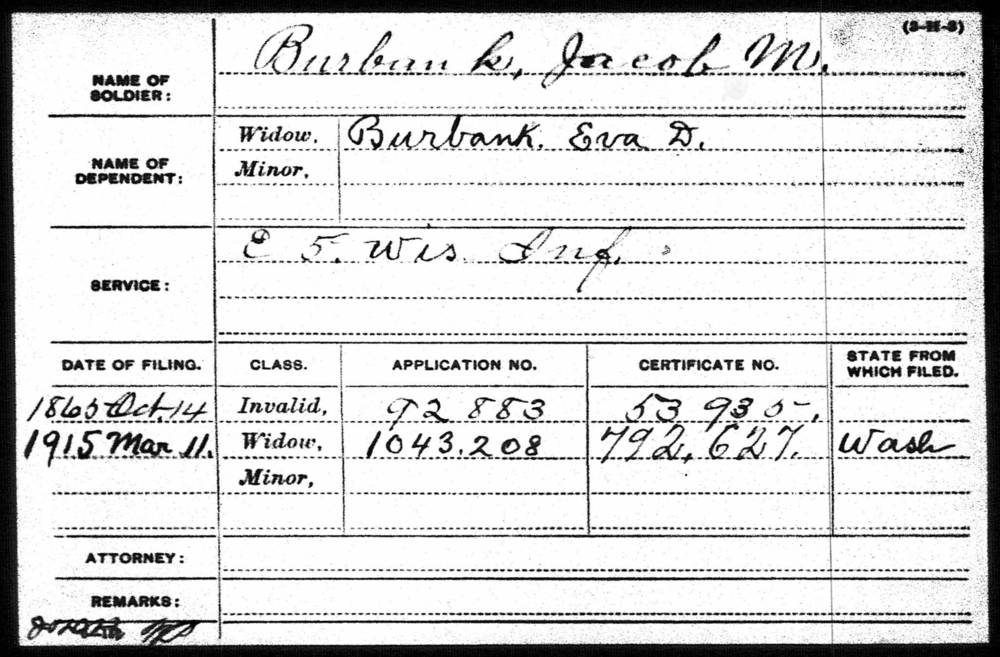 (3-H-3)
NAME OF SOLDIER: Burbank, Jacob M.
NAME OF DEPENDENT: Widow, Burbank, Eva D.
Minor,
SERVICE: E 5. Wis. Inf.
DATE OF FILING. CLASS. APPLICATION NO. CERTIFICATE NO. STATE FROM WHICH FILED.
1865 Oct. 14 Invalid, 92 883 53 935,
1915 Mar 11. Widow, 1043.208 792,627. Wash
Minor,
ATTORNEY:
REMARKS: